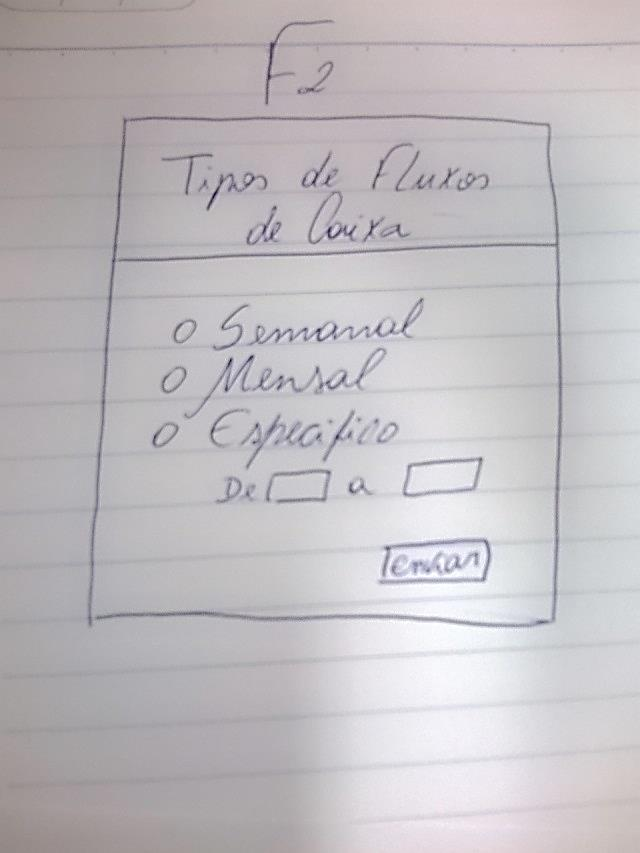 F2
Tipos de Fluxos
de Caixa
Semanal
Mensal
Especifico
De a
enviar